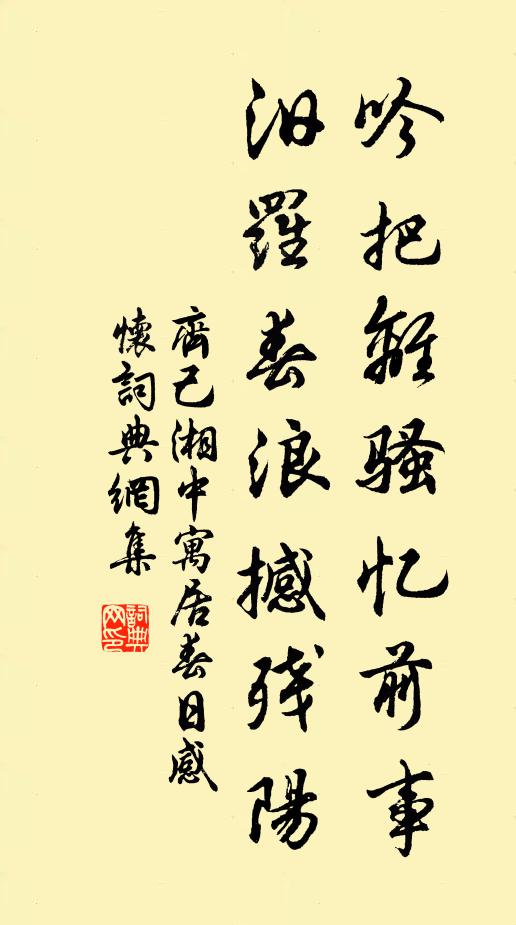 吟把離骚忆前事
汨羅春浪撼残陽
齊己湘中寓居春日感
懷詞典網集
詞典
网印